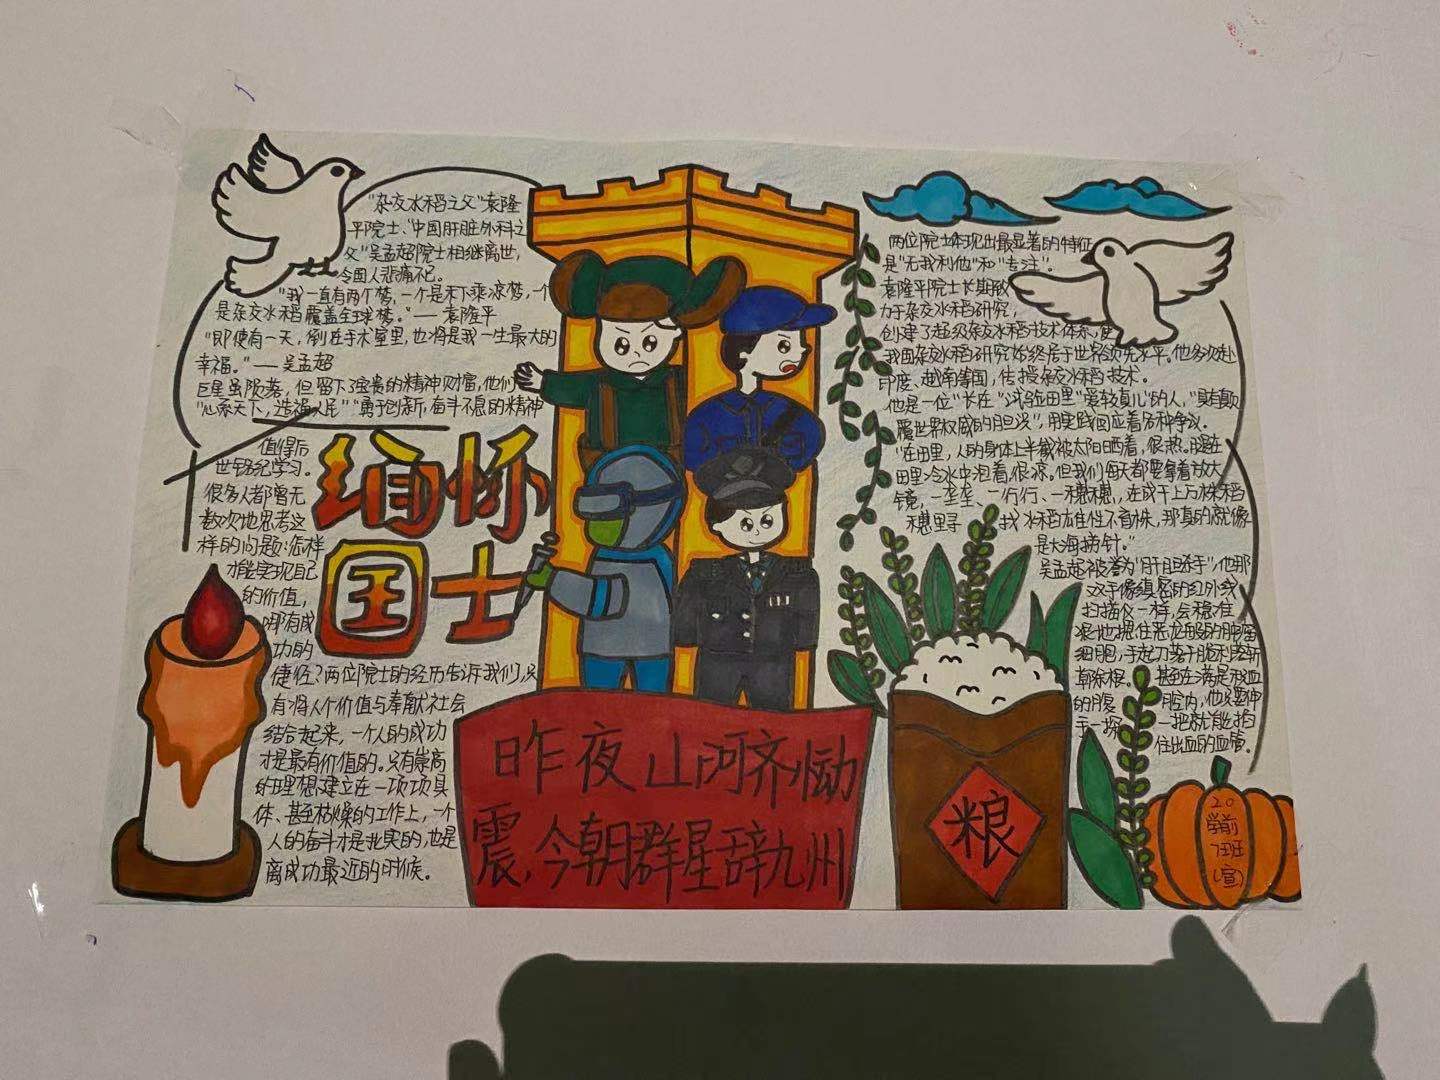 "杂交水稻之父"袁隆
平院士、"中国肝脏外科之
父"吴孟超院士相继离世,
令国人悲痛不已。
"我一直有两个梦,一个是禾下乘凉梦,一个
是杂交水稻覆盖全球梦。"——袁隆平
"即使有一天,倒在手术室里,也将是我一生最大的
幸福。"——吴孟超
巨星虽陨落,但留下了宝贵的精神财富,他们
"心系天下,造福人民""勇于创新,奋斗不息的精神
值得后
世铭记学习。
很多人都曾无
数次地思考这
样的问题:怎样
才能实现自己
的价值,
哪有成
功的
捷径?两位院士的经历告诉我们,只
有将个人价值与奉献社会
结合起来,一个人的成功
才是最有价值的。只有崇高
的理想建立在一项项具
体、甚至枯燥的工作上,一个
人的奋斗才是扎实的,也是
离成功最近的时候。
缅怀
国士
昨夜山河齐恸
震,今朝群星辞九州
两位院士体现出最显著的特征
是"无我利他"和"专注"。
袁隆平院士长期致
力于杂交水稻研究,
创建了超级杂交水稻技术体系,使
我国杂交水稻研究始终居于世界领先水平。他多次赴
印度、越南等国,传授杂交水稻技术。
他是一位"长在"试验田里"爱较真儿"的人,"具有颠
覆世界权威的胆识",用实践回应着各种争议。
"在田里,人的身体上半截被太阳晒着,很热。腿在
田里冷水中泡着很凉。但我们每天都要拿着放大
镜,一垄垄、一行行、一穗穗,在成千上万株稻
穗里寻找水稻雄性不育株,那真的就像
是大海捞针。"
吴孟超被誉为"肝胆杀手",他那
双手像缜密的红外线
扫描仪一样,会稳准
狠地摁住恶龙般的肿瘤
细胞,手起刀落干脆利落斩
草除根。甚至在满是积血
的腹腔内,他只要伸
手一探,一把就能掐
住出血的血管。
粮
20
学前
7班
(宣)